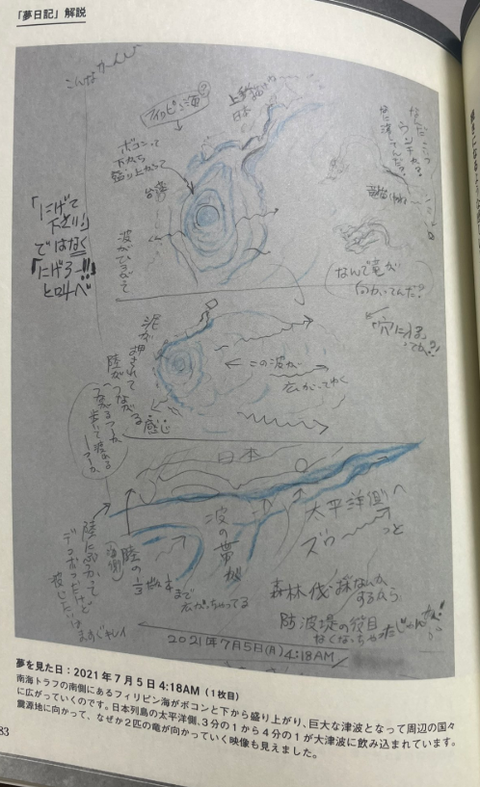 「夢日記」解説
こんなかーんじ
フィリピン海
上
日本
ボコンって
下から
盛り上がって
台湾
波がひろがって
「にげて
下さい」
ではなく
「にげろー!!」
と叫べ
なんで竜が
向かいてんだ?
「穴に入る
泥が
押されて
陸が
つながる
感じ
この波が
広がってゆく
日本
太平洋側へ
ズウーっと
波の帯が
陸の
まで
広がっちゃってる
陸にぶつかって
森林伐採なんか
するから
防波堤の役目
なくなっちゃったじゃんか!
2021年7月5日(月)4:18AM
夢を見た日:2021年7月5日4:18AM(1枚目)
南海トラフの南側にあるフィリピン海がボコンと下から盛り上がり、巨大な津波となって周辺の国々
に広がっていくのです。日本列島の太平洋側、3分の1から4分の1が大津波に飲み込まれています。
震源地に向かって、なぜか2匹の竜が向かっていく映像も見えました。
83